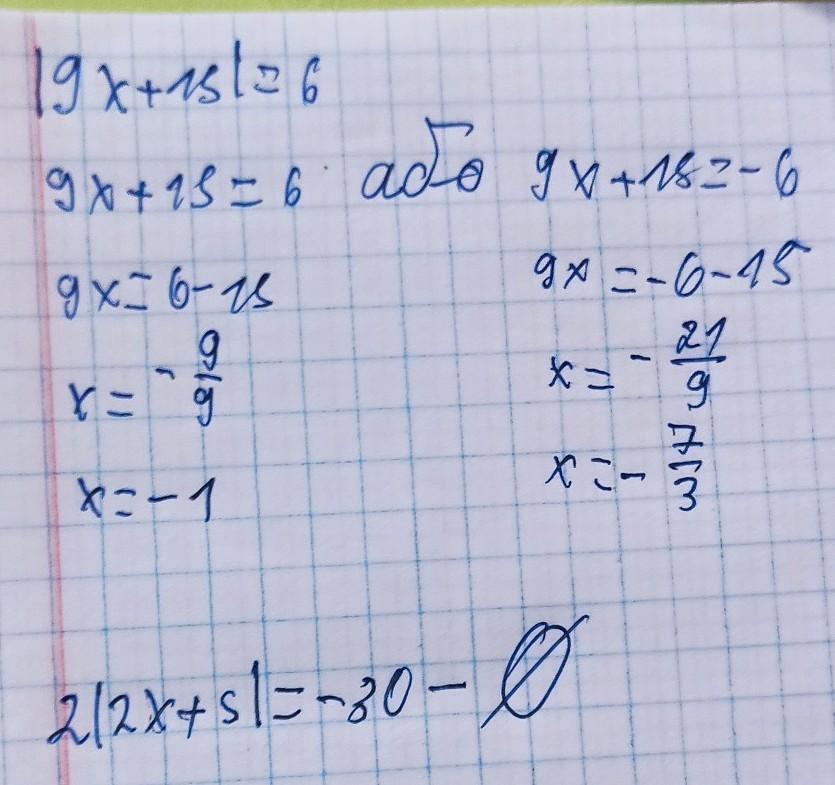 |9x+15|=6
9x+15=6 або 9x+15=-6
9x=6-15 9x=-6-15
x=-9/9 x=-21/9
x=-1 x=-7/3
2|2x+5|=-30-∅